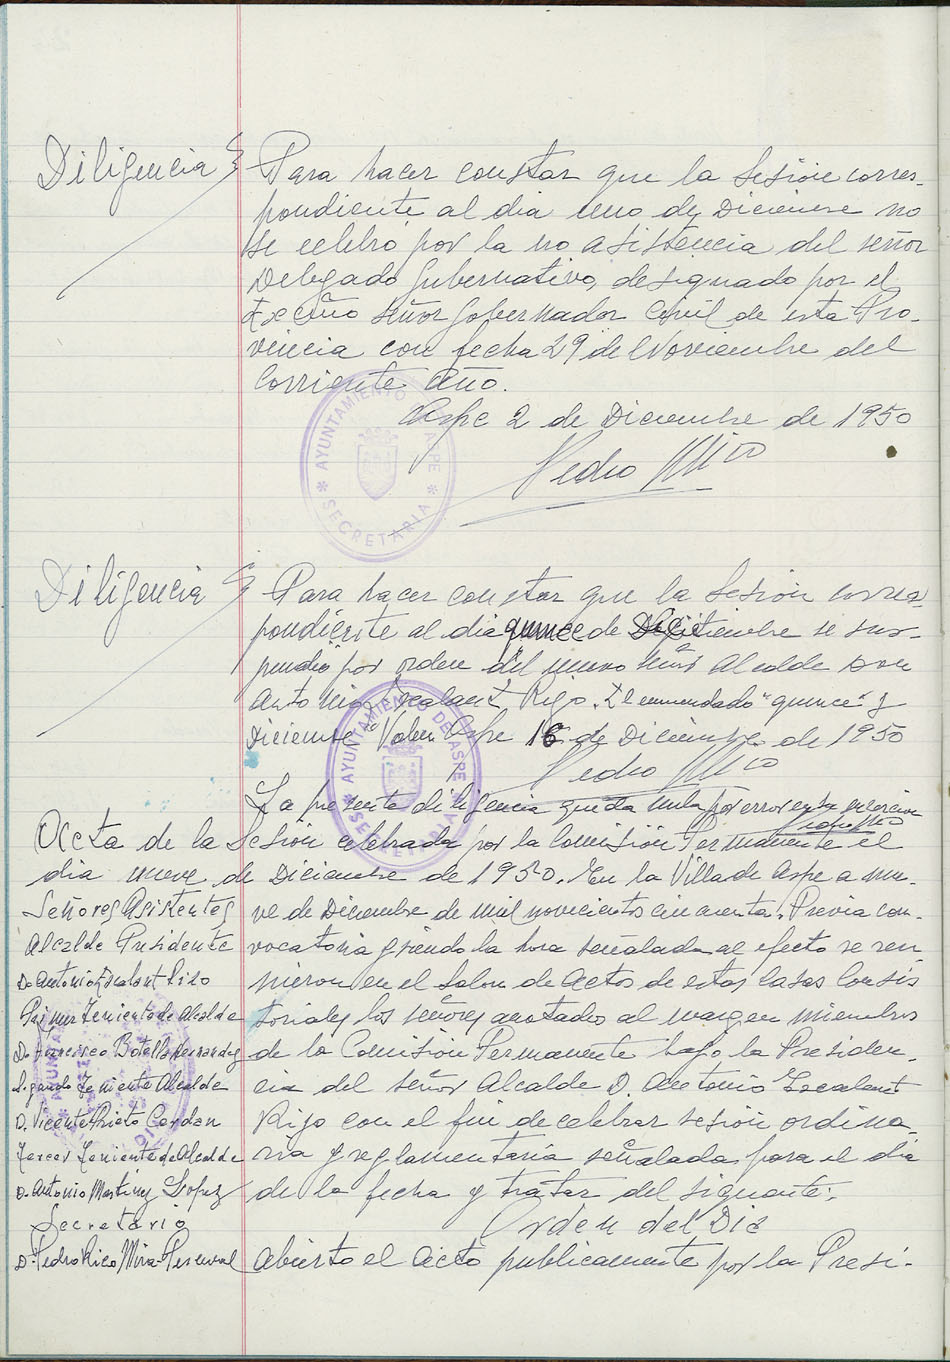 Diligencia Para hacer constar que la sesión corres-
pondiente al dia uno de Diciembre no
se celebró por la no asistencia del señor
Delegado Gubernativo, designado por el
Excmo señor Gobernador Civil de esta Pro-
vincia con fecha 29 de Noviembre del
corriente Año.
Aspe 2 de Diciembre de 1950
Pedro Rico
AYUNTAMIENTO DE ASPE
* SECRETARIA *
Diligencia Para hacer constar que la Sesión corres-
pondiente al dia quince de Diciembre se sus-
pendio por orden del nuevo señor Alcalde Don
Antonio Escalant Rigo. El enmendado "quince" y
Diciembre "Valen" Aspe 16 de Diciembre de 1950
Pedro Rico
AYUNTAMIENTO DE ASPE
* SECRETARIA *
La presente diligencia queda nula por error en su insercion
Pedro Rico
Acta de la Sesión celebrada por la Comisión Permanente el
dia nueve de Diciembre de 1950. En la Villa de Aspe a nue-
Señores Asistentes
ve de Diciembre de mil novecientos cincuenta. Previa con-
Alcalde Presidente
vocatoria y siendo la hora señalada al efecto se reu
D. Antonio Escalant Rigo
nieron en el Salon de Actos de estas Casas Consis
Primer Teniente de Alcalde
toriales los señores anotados al margen miembros
D. Francisco Botella Hernandez
de la Comisión Permanente bajo la Presiden-
Segundo Teniente Alcalde
cia del señor Alcalde D. Antonio Escalant
D. Vicente Prieto Cerdan
Rigo con el fin de celebrar sesión ordina-
Tercer Teniente de Alcalde
ria y reglamentaria señalada para el dia
D. Antonio Martinez Lopez
de la fecha y tratar del siguente:
Secretario
Orden del Dia
D. Pedro Rico Mira-Perceval
Abierto el Acto publicamente por la Presi-